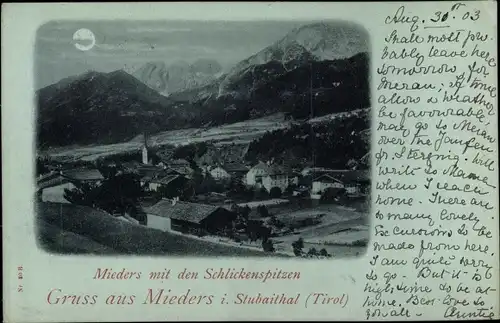 Aug. 30th 03
Shall most pro-
bably leave here
tomorrow for
Meran; if time
allows & weather
be favourable
may go to Meran
over the Jaufen
fr. Sterzing. Will
write to Mame
when I reach
there. There are
so many lovely
Excursions to be
made from here.
I am quite sorry
to go - But it is
high time to be at
home. Best love to
you all - Auntie
Mieders mit den Schlickenspitzen
Gruss aus Mieders i. Stubaithal (Tirol)